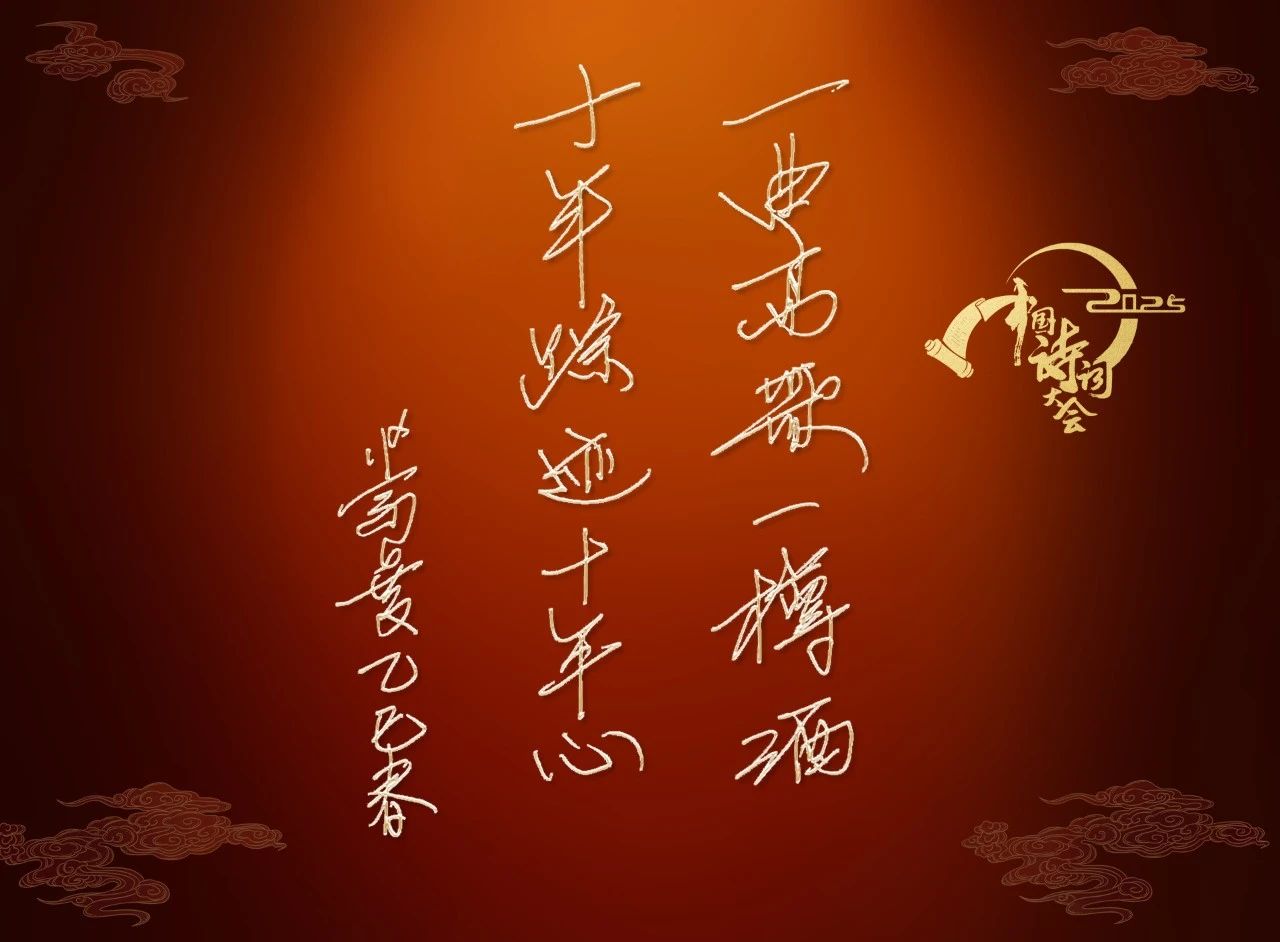 中国诗词大会
2025
一曲高歌一樽酒
十年踪迹十年心
蒙曼乙巳春